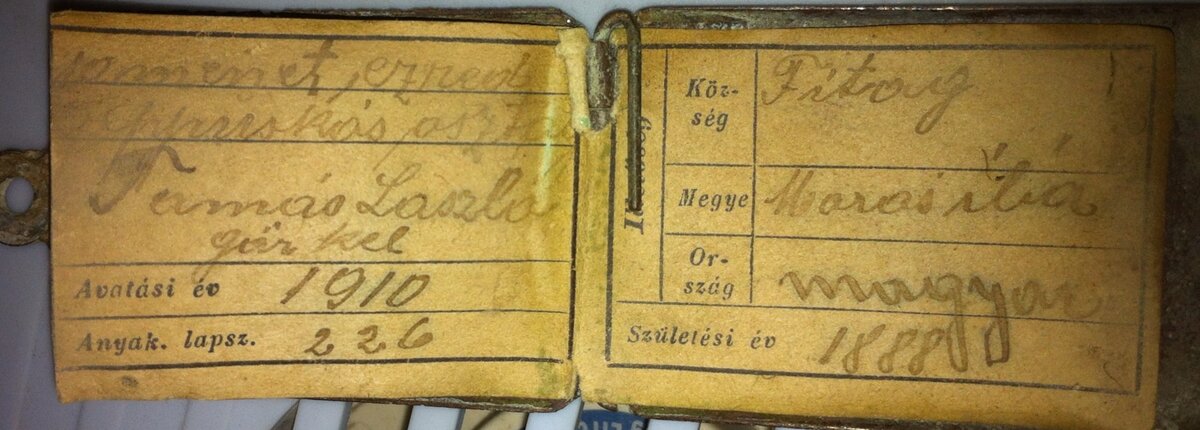 menet ezred
géppuskás oszt
Tamás László
gör kel
Avatási év 1910
Anyak. lapsz. 226
Köz-
ség Fitog
Megye Maros
Or-
szág magyar
Születési év 1888